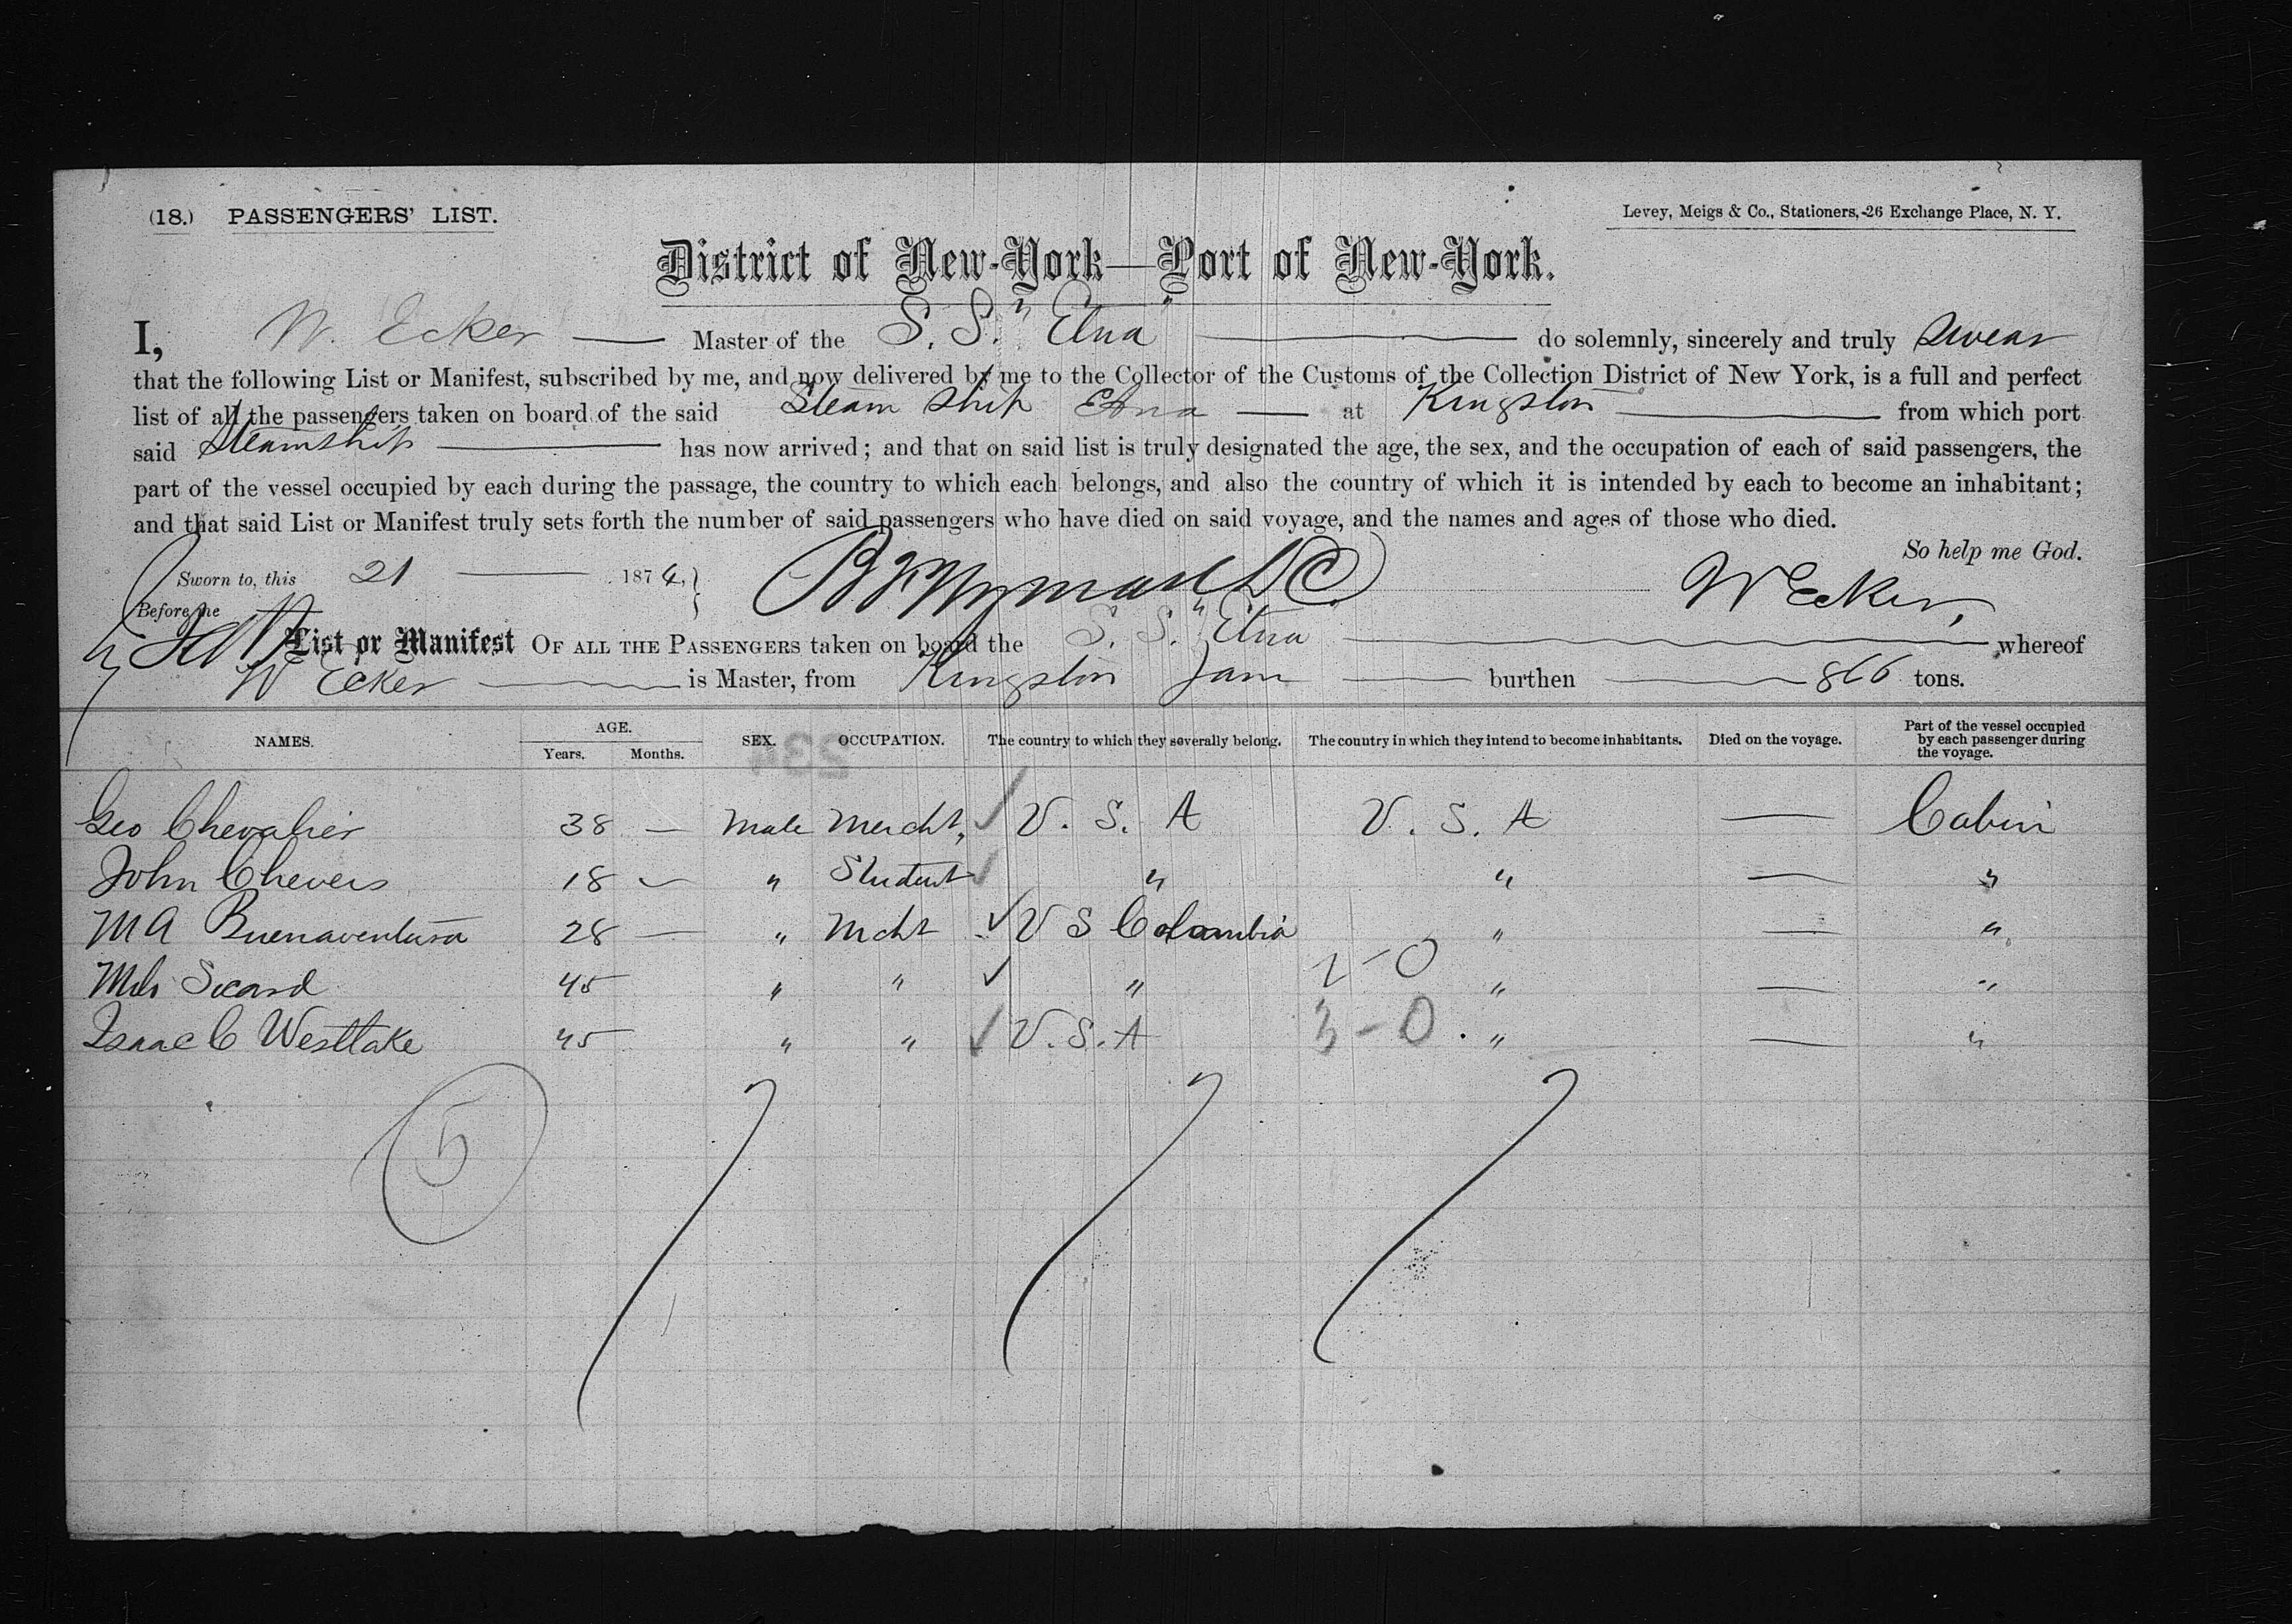 (18.) PASSENGERS' LIST.
Levey, Meigs & Co., Stationers, 26 Exchange Place, N. Y.
District of New-York—Port of New-York.
I, W. Ecker — Master of the S. S. "Etna" — do solemnly, sincerely and truly swear
that the following List or Manifest, subscribed by me, and now delivered by me to the Collector of the Customs of the Collection District of New York, is a full and perfect
list of all the passengers taken on board of the said Steam Ship Etna — at Kingston — from which port
said Steamship — has now arrived; and that on said list is truly designated the age, the sex, and the occupation of each of said passengers, the
part of the vessel occupied by each during the passage, the country to which each belongs, and also the country of which it is intended by each to become an inhabitant;
and that said List or Manifest truly sets forth the number of said passengers who have died on said voyage, and the names and ages of those who died.
So help me God.
Sworn to, this 21 — 187
Before me
W Ecker
List or Manifest OF ALL THE PASSENGERS taken on board the S. S. "Etna — whereof
W Ecker — is Master, from Kingston Jam — burthen — 866 tons.
NAMES. AGE. Years. Months. SEX. OCCUPATION. The country to which they severally belong. The country in which they intend to become inhabitants. Died on the voyage. Part of the vessel occupied by each passenger during the voyage.
234
Geo Chevalier 38 — Male Mercht, U. S. A U. S. A — Cabin
John Chevers 18 — " Student " " — "
M A Buenaventura 28 — " Mcht U S Colombia " — "
Sicard 45 " " " " — "
1-0
Isaac C Westlake 45 " " U. S. A 3-0 " — "
5